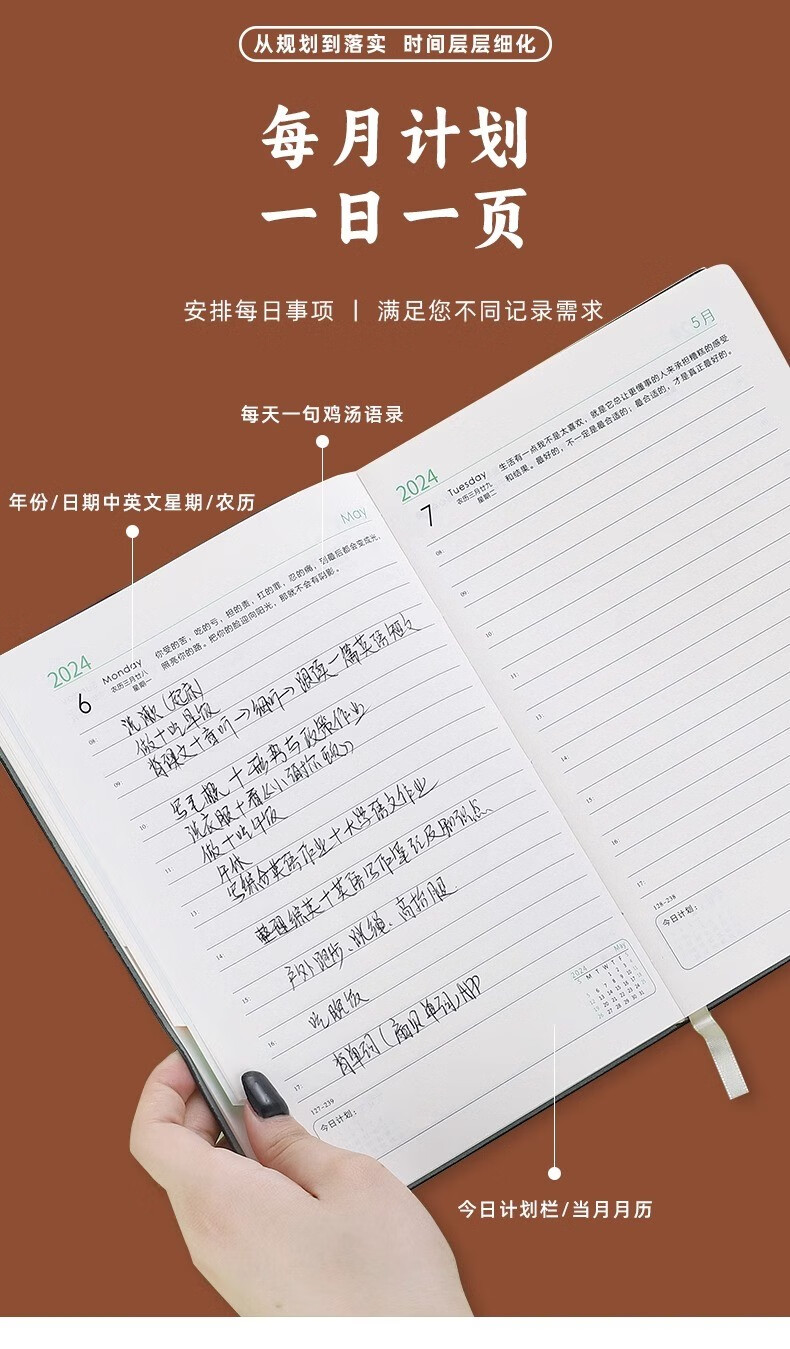 从规划到落实 时间层层细化
每月计划
一日一页
安排每日事项 | 满足您不同记录需求
每天一句鸡汤语录
年份/日期中英文星期/农历
5月
2024
7
Tuesday
农历三月廿九
星期二
生活有一点我不是太喜欢，就是它总让更懂事的人来承担糟糕的感受
和结果。最好的，不一定是最合适的；最合适的，才是真正最好的。
08
09
10
11
13
14
15
16
17
128-238
今日计划：
May
2024
6
Monday
农历三月廿八
星期一
你受的苦，吃的亏，担的责，扛的罪，忍的痛，到最后都会变成光，
照亮你的路。把你的脸迎向阳光，那就不会有阴影。
洗漱（起床）
做+吃早饭
背课文+音听→细听→跟读一篇英语短文
写毛概+形势与政策作业
洗衣服+看《小猪佩奇》
做+吃午饭
午休
写综合英语作业+大学语文作业
整理综英+英语写作笔记及知识点
户外跑步、跳绳、高抬腿
吃晚饭
背单词（扇贝单词APP
08
09
10
11
13
14
15
16
17
127-239
今日计划：
2024
May
S M T W T F S
今日计划栏/当月月历